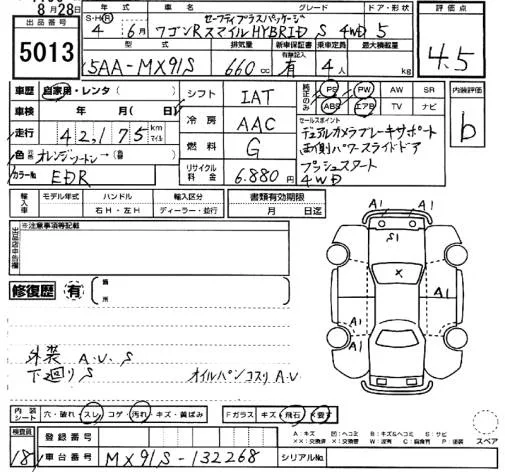 8月28日
出品番号
5013
年式
車名
グレード
ドア・形状
評価点
S・H・R
4年 6月
セーフティプラスパッケージ
ワゴンRスマイル HYBRID S 4WD 5
4.5
型式
排気量
新車保証書
有無記入
乗車定員
最大積載量
5AA-MX91S
660cc
有
4人
kg
車歴
自家用・レンタ(
)
シフト
IAT
純正のみ
PS
PW
AW
SR
ABS
エアB
TV
ナビ
内装評価
b
車検
年
月(
日)
冷房
AAC
走行
42,175
km
マイル
セールスポイント
デュアルカメラブレーキサポート
両側パワースライドドア
プッシュスタート
4WD
色
オレンジツートン→(
)
燃料
G
カラーNo.
EDR
リサイクル料金
6.880円
輸入車
モデル年式
ハンドル
右H・左H
輸入区分
ディーラー・並行
書類有効期限
月
日迄
出品店申告欄
※注意事項等記載
修復歴
有
箇所
外装 A.U.S
下廻り S
オイルパンコスリ A.U
A1
A1
S1
X
A1
A1
A1
内装シート
穴・破れ・スレ・コゲ・汚れ・キズ・黄ばみ
Fガラス
キズ・飛石・X要す
検査員
181
登録番号
車台番号
MX91S-132268
シリアルNo.
A:キズ
凹:ヘコミ
B:キズ&ヘコミ
S:サビ
XX:交換済
X:要交換
W:波有
C:腐食有
P:塗装
スペア